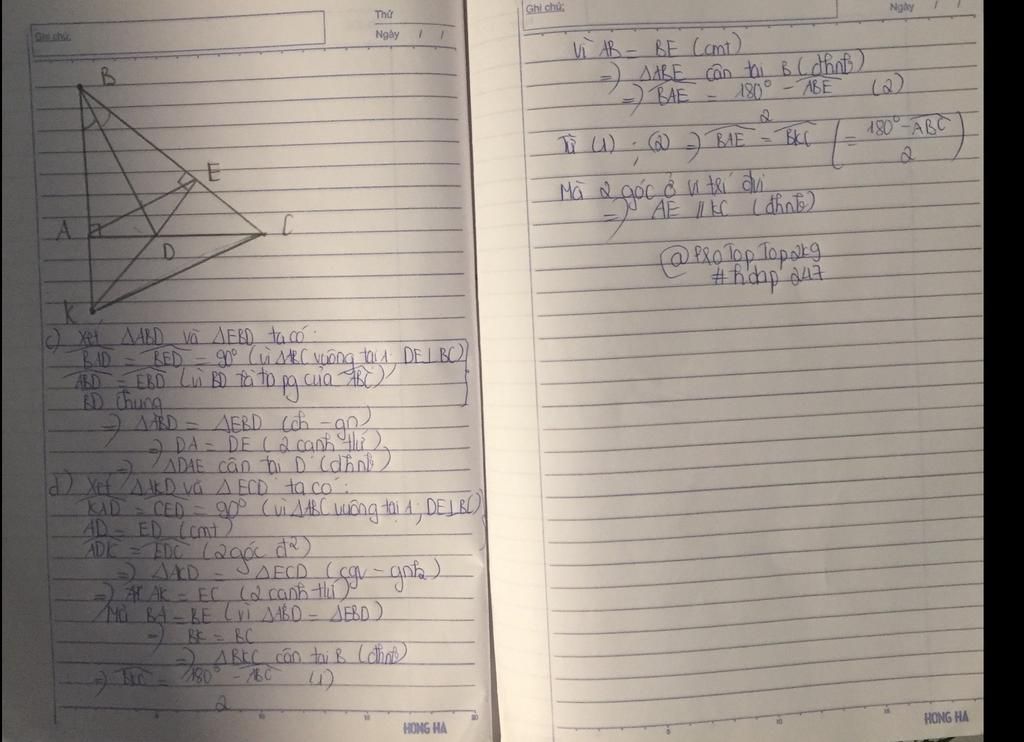 Ghi chú:
Thứ
Ngày / /
B
E
A
D
C
K
c) Xét ΔABD và ΔEBD ta có:
BAD = BED = 90° (vì ΔABC vuông tại A, DE⊥BC)
ABD = EBD (vì BD là tia pg của ABC)
BD chung
=) ΔABD = ΔEBD (ch - gn)
=) DA = DE (2 cạnh t/ứ)
=) ΔDAE cân tại D (dhnb)
d) Xét ΔAKD và ΔECD ta có:
KAD = CED = 90° (vì ΔABC vuông tại A; DE⊥BC)
AD = ED (cmt)
ADK = EDC (2 góc đ²)
=) ΔAKD = ΔECD (cgv - gnk)
=) AK = EC (2 cạnh t/ứ)
Mà BA = BE (vì ΔABD = ΔEBD)
=) BK = BC
=) ΔBKC cân tại B (dhnb)
=) BKC = 180° - ABC (1)
2
HONG HA
Ghi chú:
Ngày / /
Vì AB = BE (cmt)
=) ΔABE cân tại B (dhnb)
=) BAE = 180° - ABE (2)
2
Từ (1) ; (2) =) BAE = BKC (= 180° - ABC
2 )
Mà 2 góc ở vị trí đvị
=) AE // KC (dhnb)
@ProTopTop2k9
#hdap 247
HONG HA